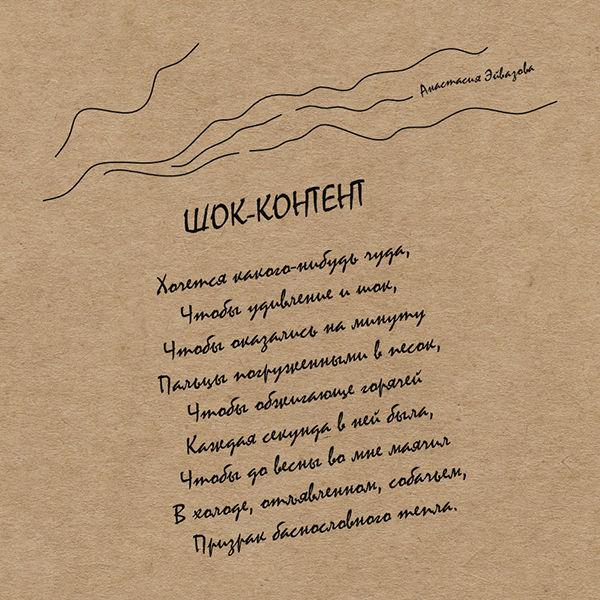 Анастасия Эйвазова
ШОК-КОНТЕНТ
Хочется какого-нибудь чуда,
Чтобы удивление и шок,
Чтобы оказались на минуту
Пальцы погруженными в песок,
Чтобы обжигающе горячей
Каждая секунда в ней была,
Чтобы до весны во мне маячил
В холоде, отъявленном, собачьем,
Призрак баснословного тепла.